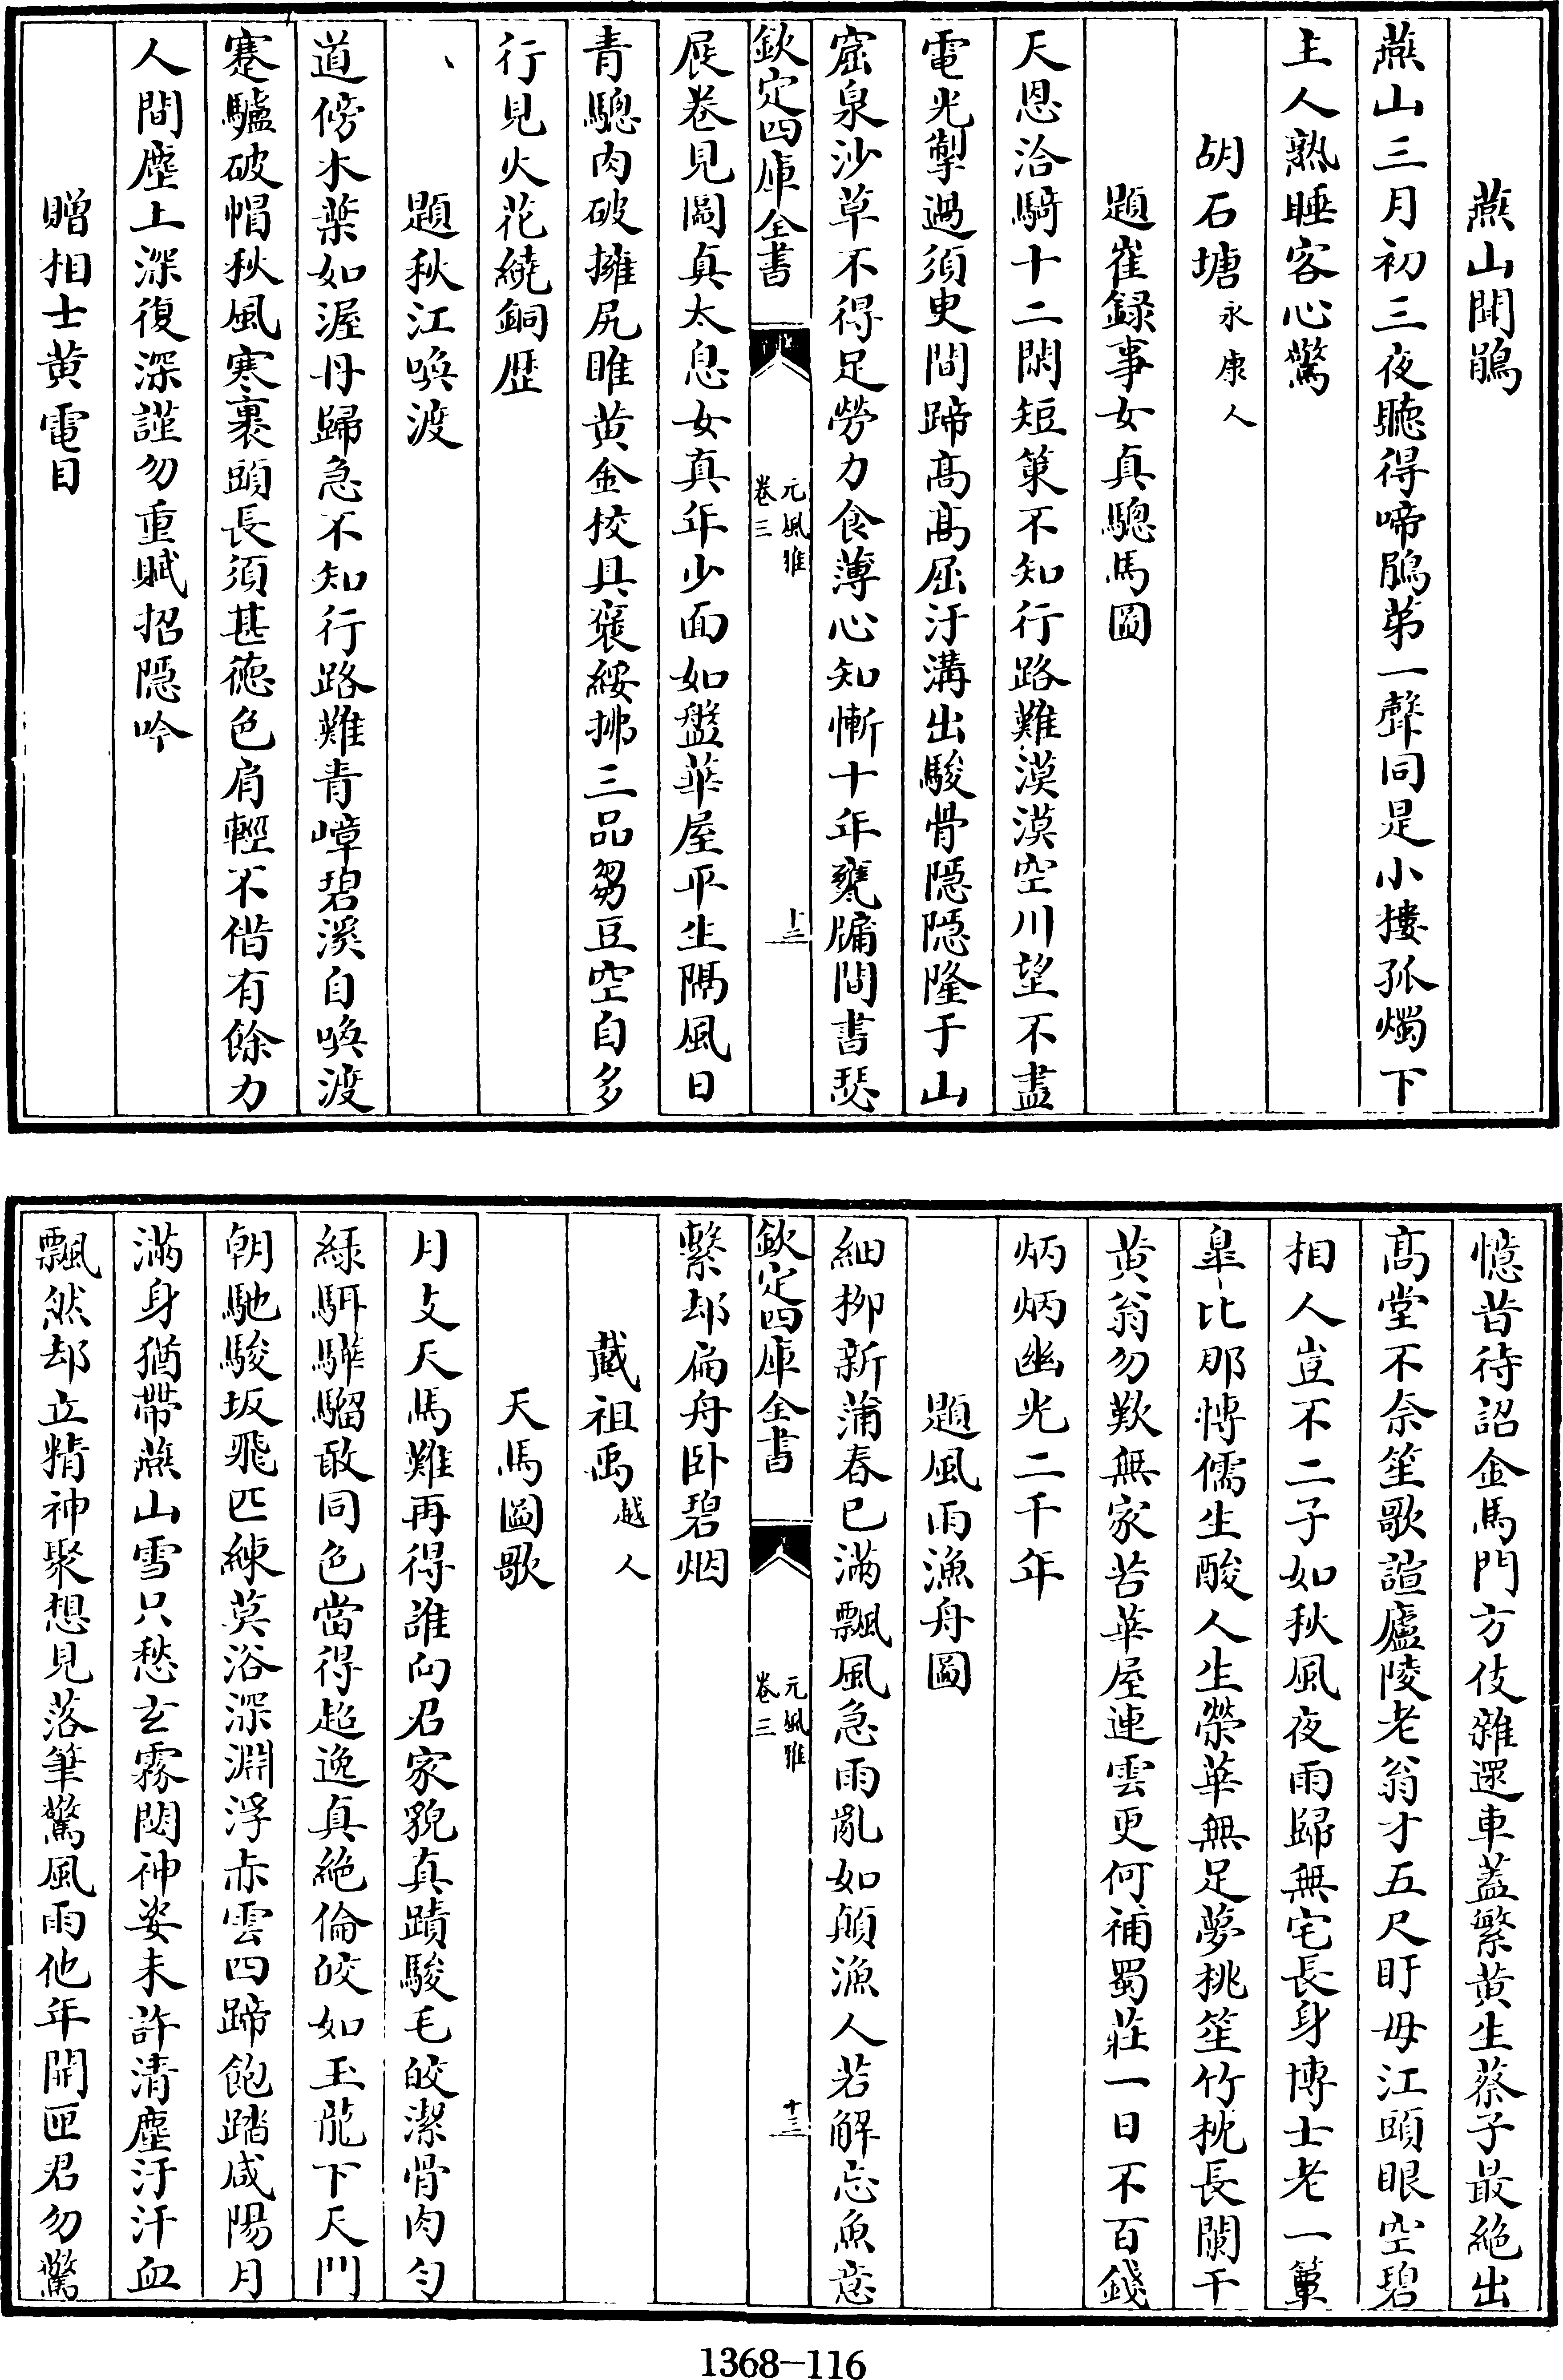 燕山聞鵑
燕山三月初三夜聽得啼鵑第一聲同是小樓孤燭下
主人熟睡客心驚
胡石塘永康人
題崔録事女真驄馬圖
天恩洽騎十二閑短策不知行路難漠漠空川望不盡
電光掣過須臾間蹄髙髙屈汙溝出駿骨隠隠隆于山
窟泉沙草不得足勞力食薄心知慚十年甕牖間書琴
欽定四庫全書
元風雅
卷三
十三
展卷見圖真太息女真年少面如盤華屋平生隔風日
青驄肉破擁尻脽黄金校具褭綏拂三品芻豆空自多
行見火花繞銅歴
題秋江喚渡
道傍木葉如渥丹歸急不知行路難青嶂碧溪自喚渡
蹇驢破帽秋風寒裹頭長須甚徳色肩輕不借有餘力
人間塵土深復深謹勿重賦招隠吟
贈相士黄電目
憶昔待詔金馬門方伎雜遝車蓋繁黄生蔡子最絶出
髙堂不奈笙歌諠廬陵老翁才五尺盱母江頭眼空碧
相人豈不二子如秋風夜雨歸無宅長身博士老一簞
臯比那慱儒生酸人生榮華無足夢桃笙竹枕長闌干
黄翁勿歎無家苦華屋連雲更何補蜀莊一日不百錢
炳炳幽光二千年
題風雨漁舟圖
細栁新蒲春已滿飄風急雨亂如顛漁人若解忘魚意
欽定四庫全書
元風雅
卷三
十三
繫却扁舟卧碧烟
戴祖禹越人
天馬圖歌
月支天馬難再得誰向君家貌真蹟駿毛皎潔骨肉匀
緑駬驊騮敢同色當得超逸真絶倫皎如玉龍下天門
朝馳駿坂飛匹練莫浴深淵浮赤雲四蹄飽踏咸陽月
滿身猶帶燕山雪只愁玄霧閟神姿未許清塵汙汗血
飄然却立精神聚想見落筆驚風雨他年開匣君勿驚
1368-116